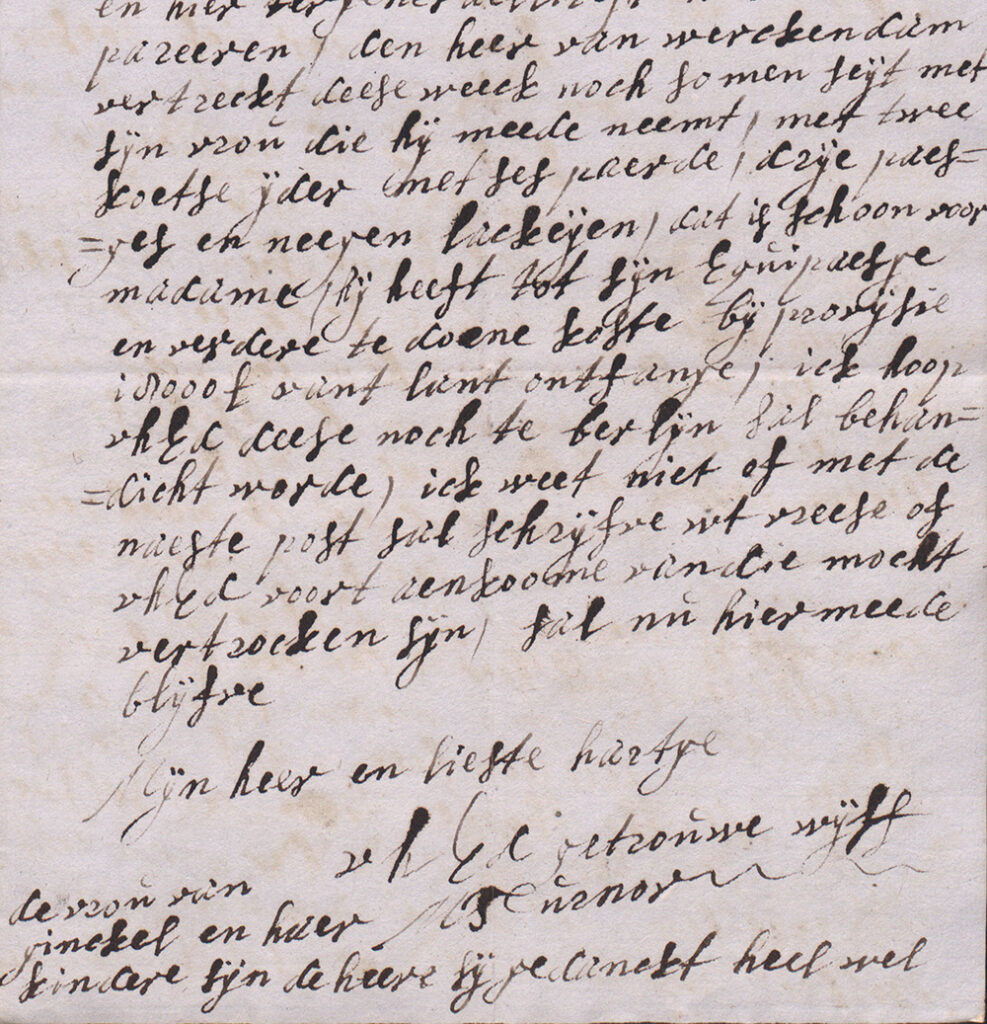 en hier
pareeren, den heer van werckendam
vertreckt deese weeck noch so men seÿt met
sÿn vroŭ die hÿ meede neemt, met twee
koetse ÿder met ses paerde, drÿe paes=
=ges en neegen lackeÿen, dat is schoon voor
madame, hÿ heeft tot sÿn Equipaesge
en verdere te doene koste bÿ provÿsie
18000f vant lant ontfange, ick hoop
vhEd deese noch te berlÿn sal behan=
=dicht worde, ick weet niet of met de
naeste post sal schrÿfve wt vreese of
vhEd voort aenkoome van die mocht
vertrocken sÿn, sal nŭ hier meede
blÿfve
Mÿn heer en lieste hartge
vhEd getroŭwe wÿff
M Tŭrnor
de vroŭ van
ginckel en haer
kindere sÿn de heere sÿ gedanckt heel wel